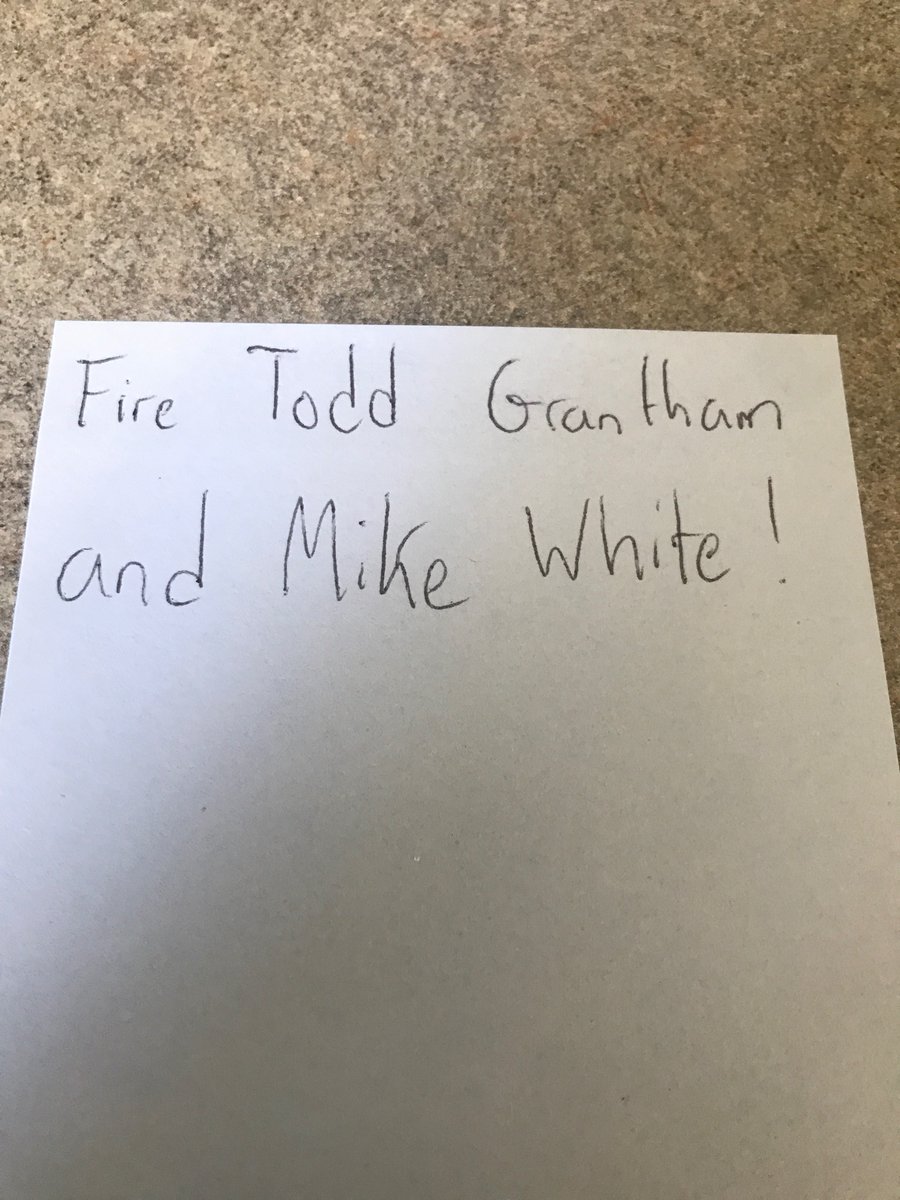 Fire Todd Grantham
and Mike White!